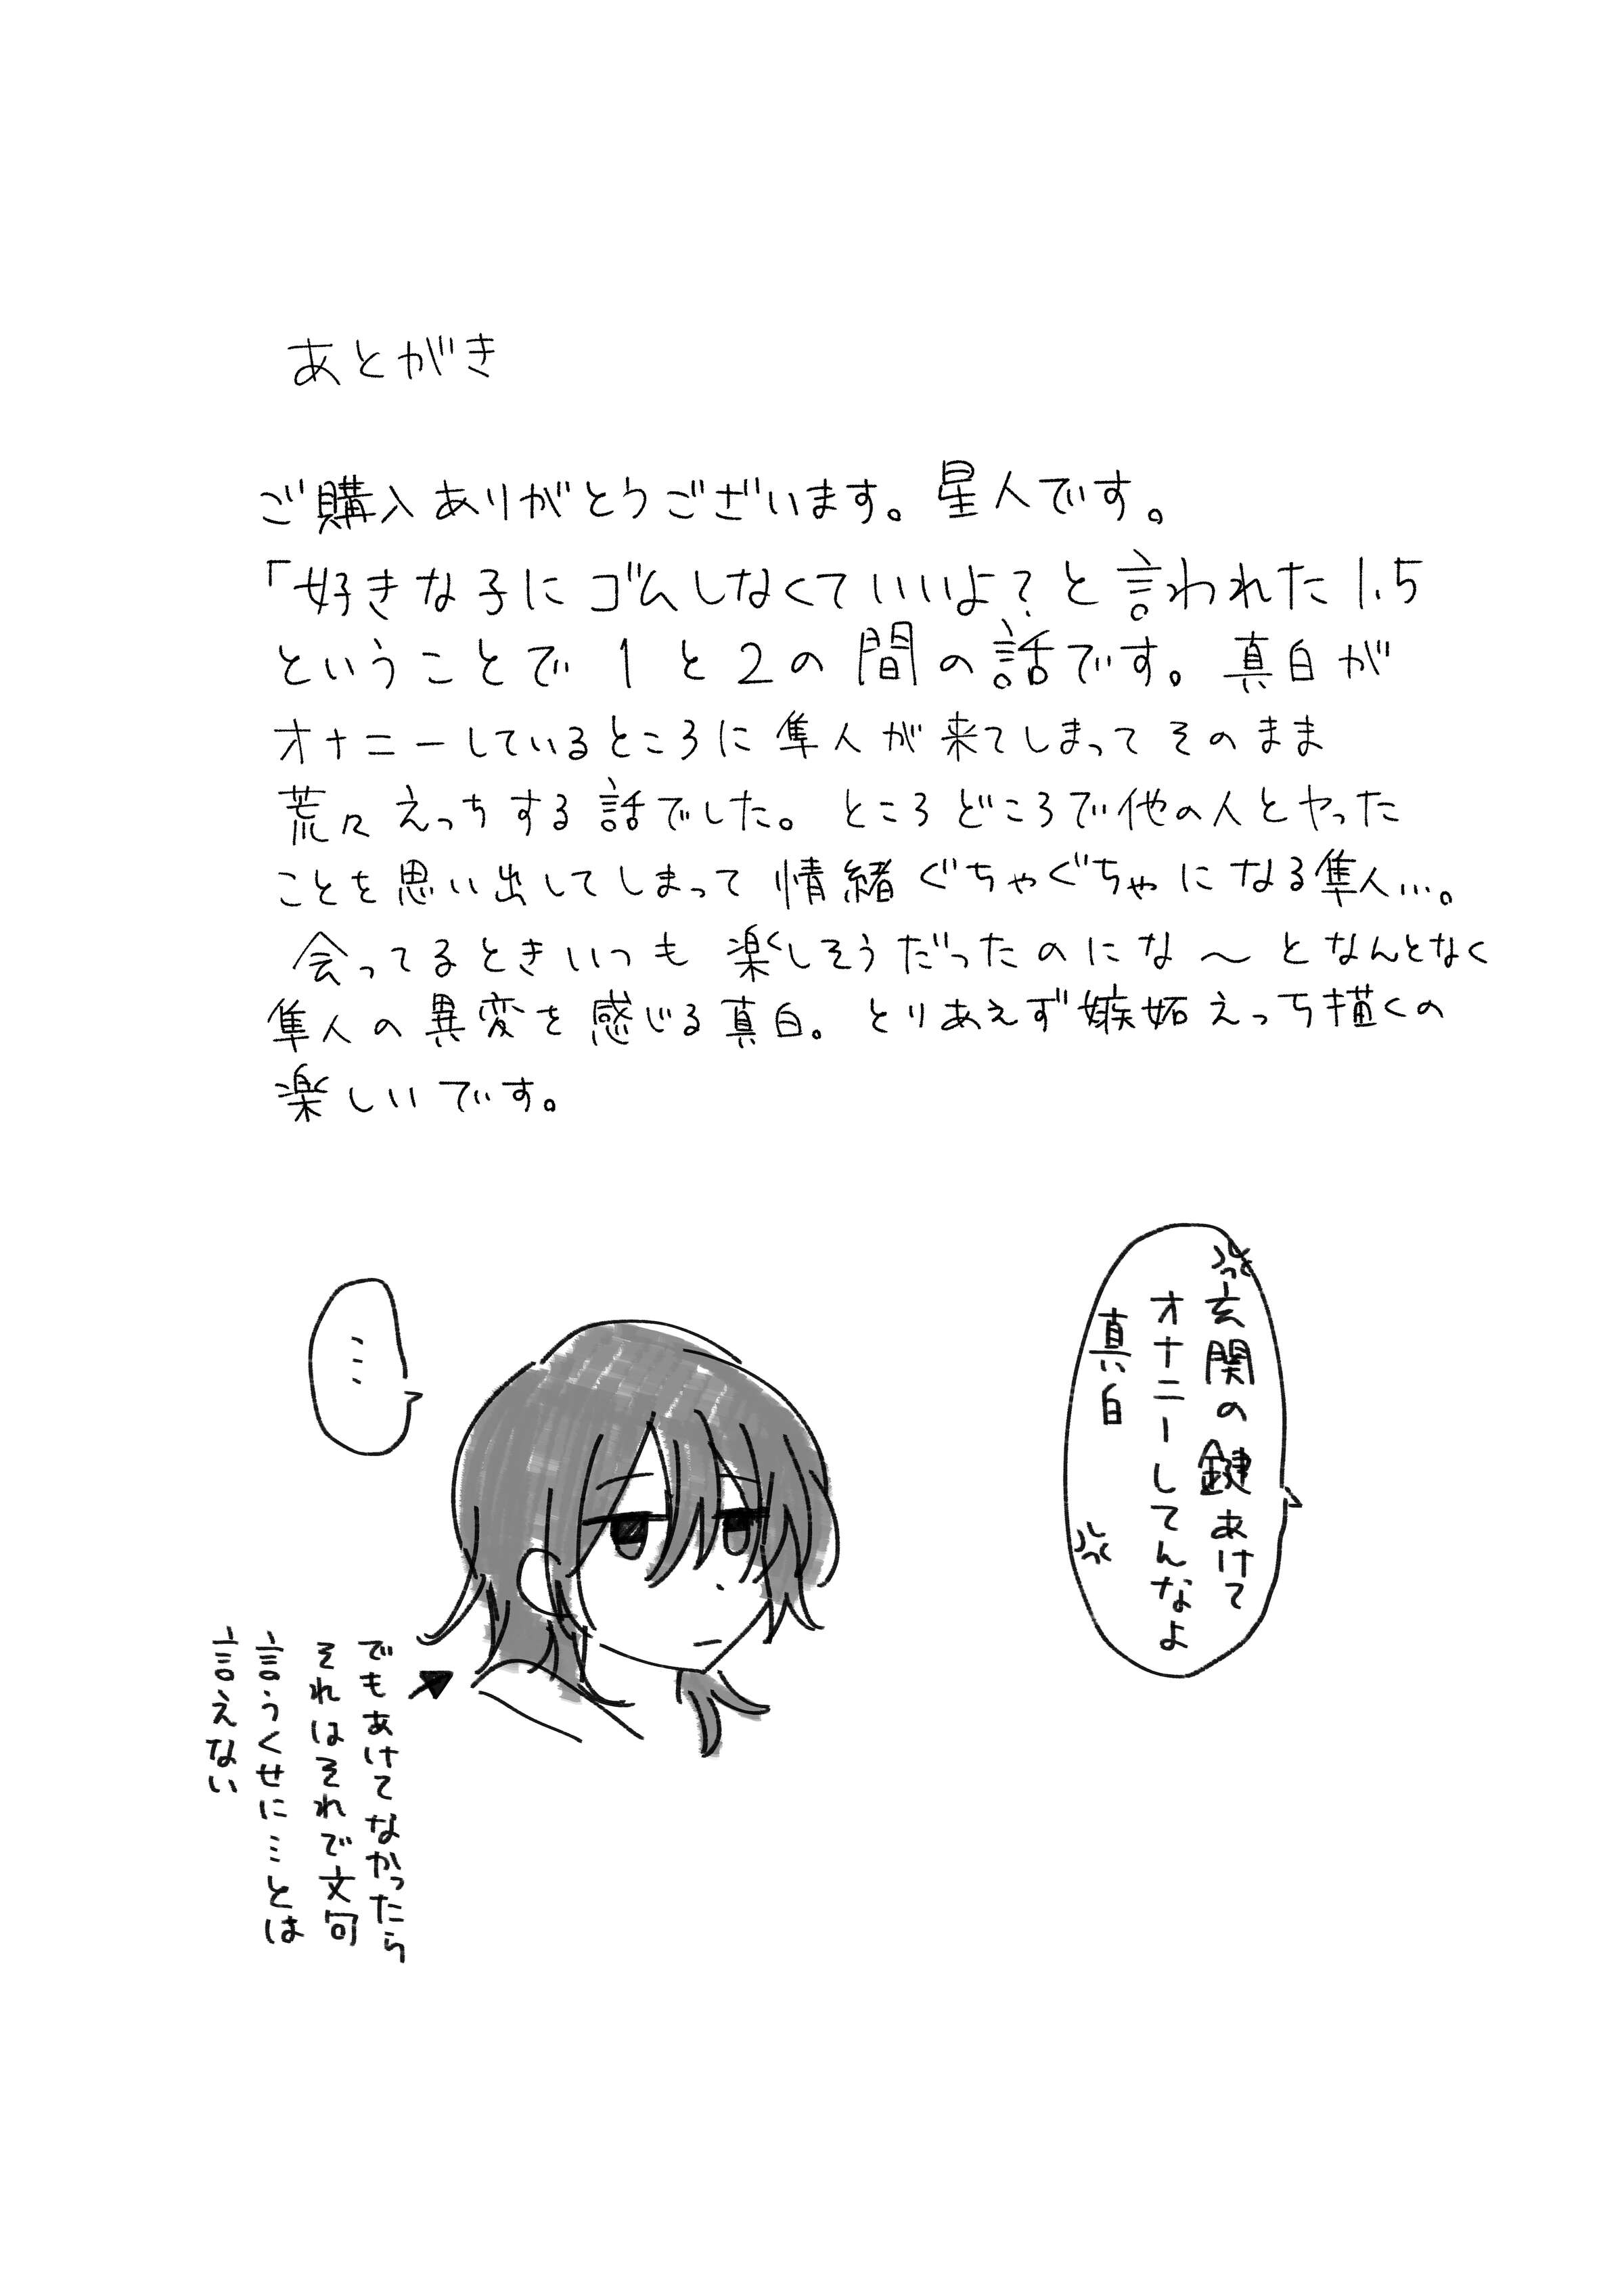 あとがき
ご購入ありがとうございます。星人です。
「好きな子にゴムしなくていいよ?と言われた1.5
ということで1と2の間の話です。真白が
オナニーしているところに隼人が来てしまってそのまま
荒々えっちする話でした。ところどころで他の人とヤった
ことを思い出してしまって情緒ぐちゃぐちゃになる隼人…。
会ってるときいつも楽しそうだったのにな〜となんとなく
隼人の異変を感じる真白。とりあえず嫉妬えっち描くの
楽しいです。
玄関の鍵あけて
オナニーしてんなよ
真白
…
でもあけてなかったら
それはそれで文句
言うくせに…とは
言えない